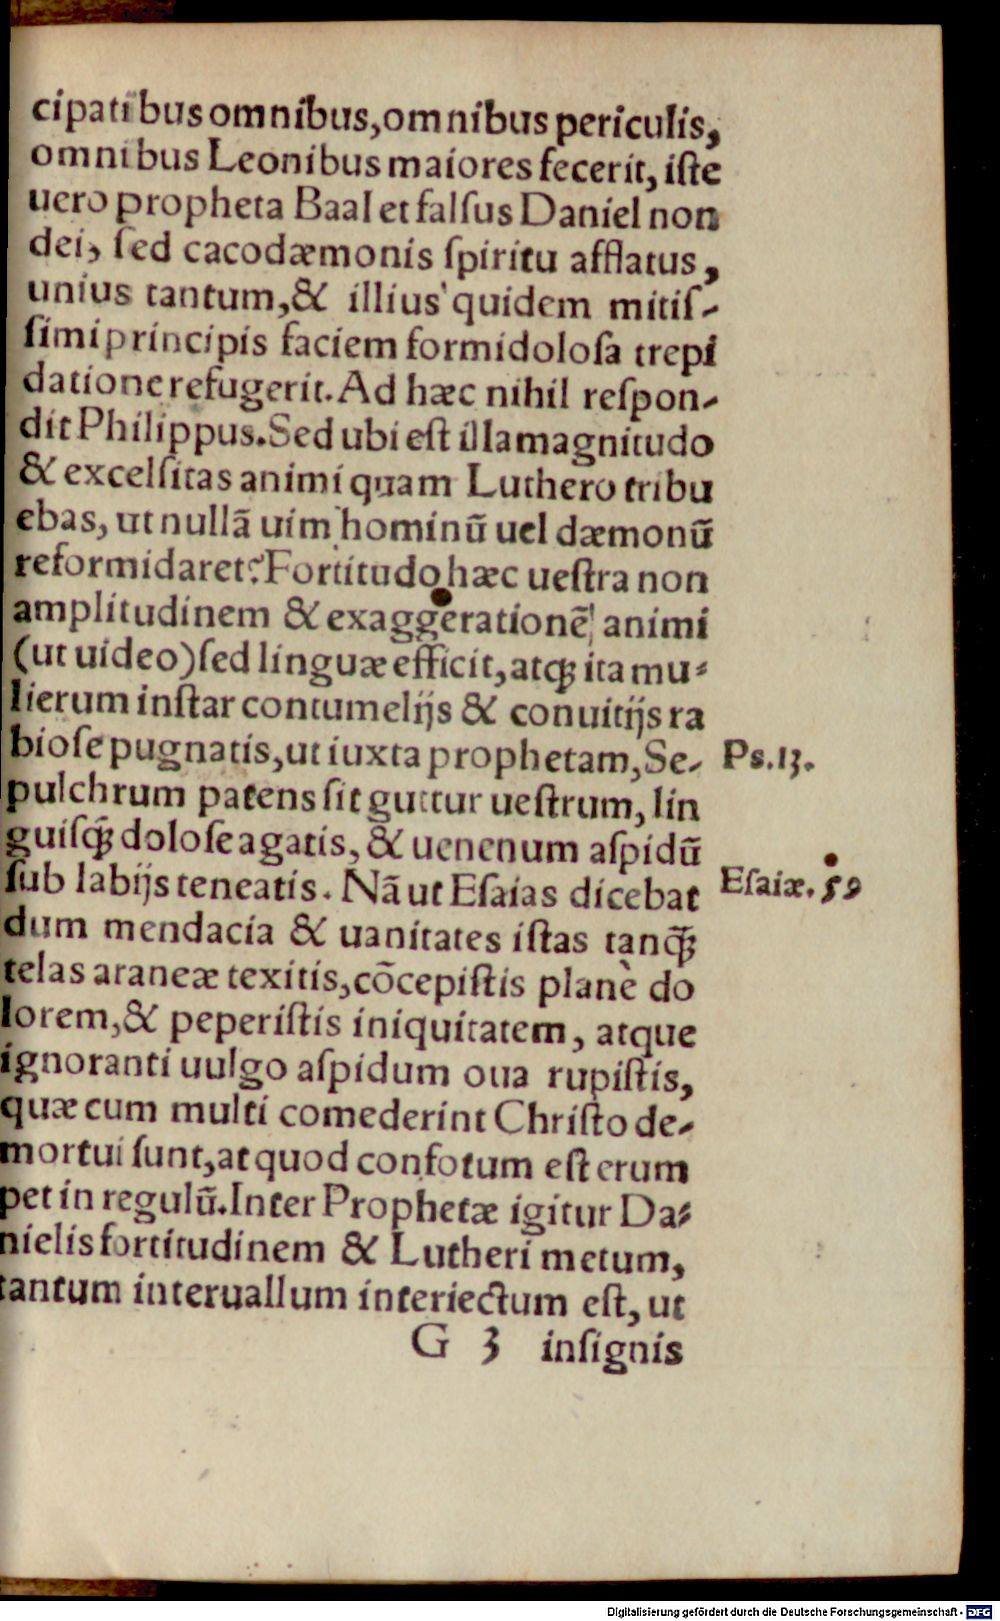 cipatibus omnibus, omnibus periculis,
omnibus Leonibus maiores fecerit, iſte
uero propheta Baal et falſus Daniel non
dei, ſed cacodæmonis ſpiritu afflatus,
unius tantum, & illius quidem mitiſ-
ſimi principis faciem formidoloſa trepi
datione refugerit. Ad hæc nihil reſpon-
dit Philippus. Sed ubi eſt illa magnitudo
& excelſitas animi quam Luthero tribu
ebas, ut nullã uim hominũ uel dæmonũ
reformidaret? Fortitudo hæc ueſtra non
amplitudinem & exaggerationẽ animi
(ut uideo) ſed linguæ efficit, atq; ita mu-
lierum inſtar contumelijs & conuitijs ra
bioſe pugnatis, ut iuxta prophetam, Se-
Ps. 13.
pulchrum patens ſit guttur ueſtrum, lin
guiſq; doloſe agatis, & uenenum aſpidũ
ſub labijs teneatis. Nã ut Eſaias dicebat
Eſaiæ. 59
dum mendacia & uanitates iſtas tanq̃;
telas araneæ texitis, cõcepiſtis planè do
lorem, & peperiſtis iniquitatem, atque
ignoranti uulgo aſpidum oua rupiſtis,
quæ cum multi comederint Chriſto de-
mortui ſunt, at quod confotum eſt erum
pet in regulũ. Inter Prophetæ igitur Da-
nielis fortitudinem & Lutheri metum,
tantum interuallum interiectum eſt, ut
G 3 inſignis
Digitalisierung gefördert durch die Deutsche Forschungsgemeinschaft - DFG